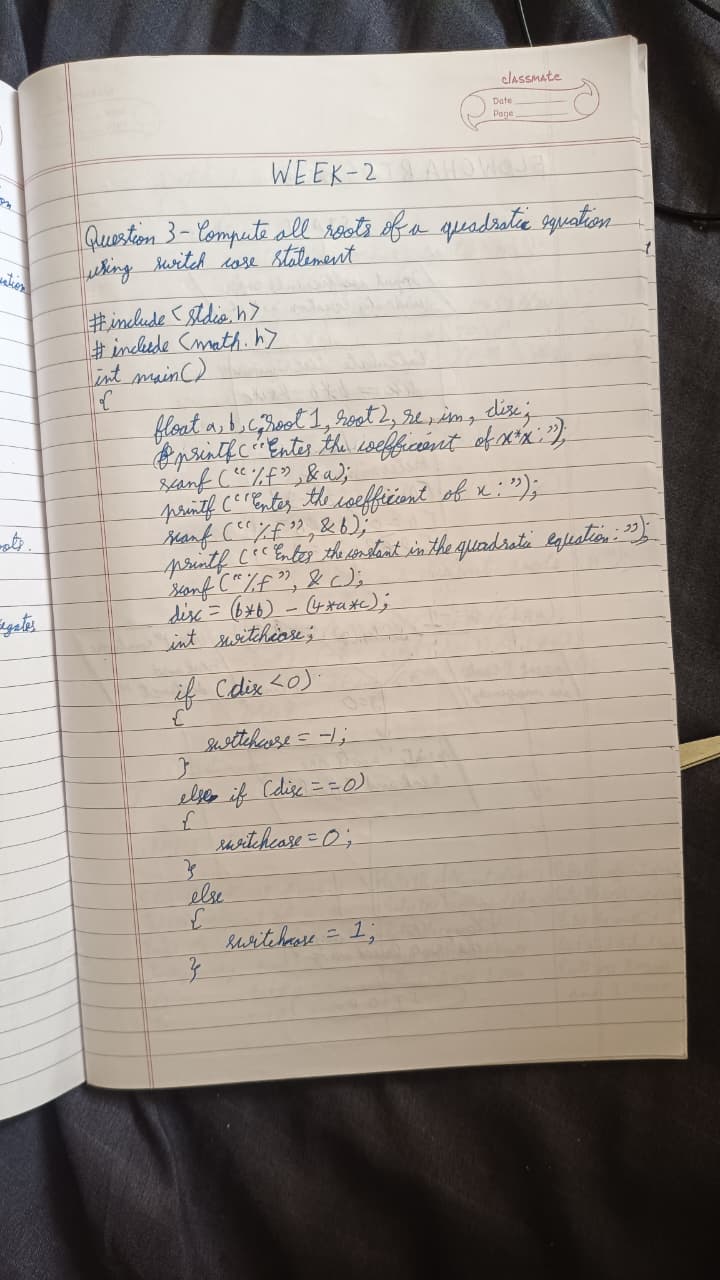 classmate
Date
Page
WEEK-2
Question 3- Compute all roots of a quadratic equation
using switch case statement
#include <stdio.h>
# include <math.h>
int main()
{
float a, b, c, root 1, root 2, re, im, disc;
printf(“Enter the coefficient of x*x:”);
scanf (“%f”, &a);
printf (“Enter the coefficient of x:”);
scanf (“%f”, &b);
printf (“Enter the constant in the quadratic equation:”);
scanf (“%f”, &c);
disc = (b*b) - (4*a*c);
int switchcase;
if (disc <0)
{
switchcase = -1;
}
else if (disc ==0)
{
switchcase = 0;
}
else
{
switchcase = 1;
}
ots.
gates